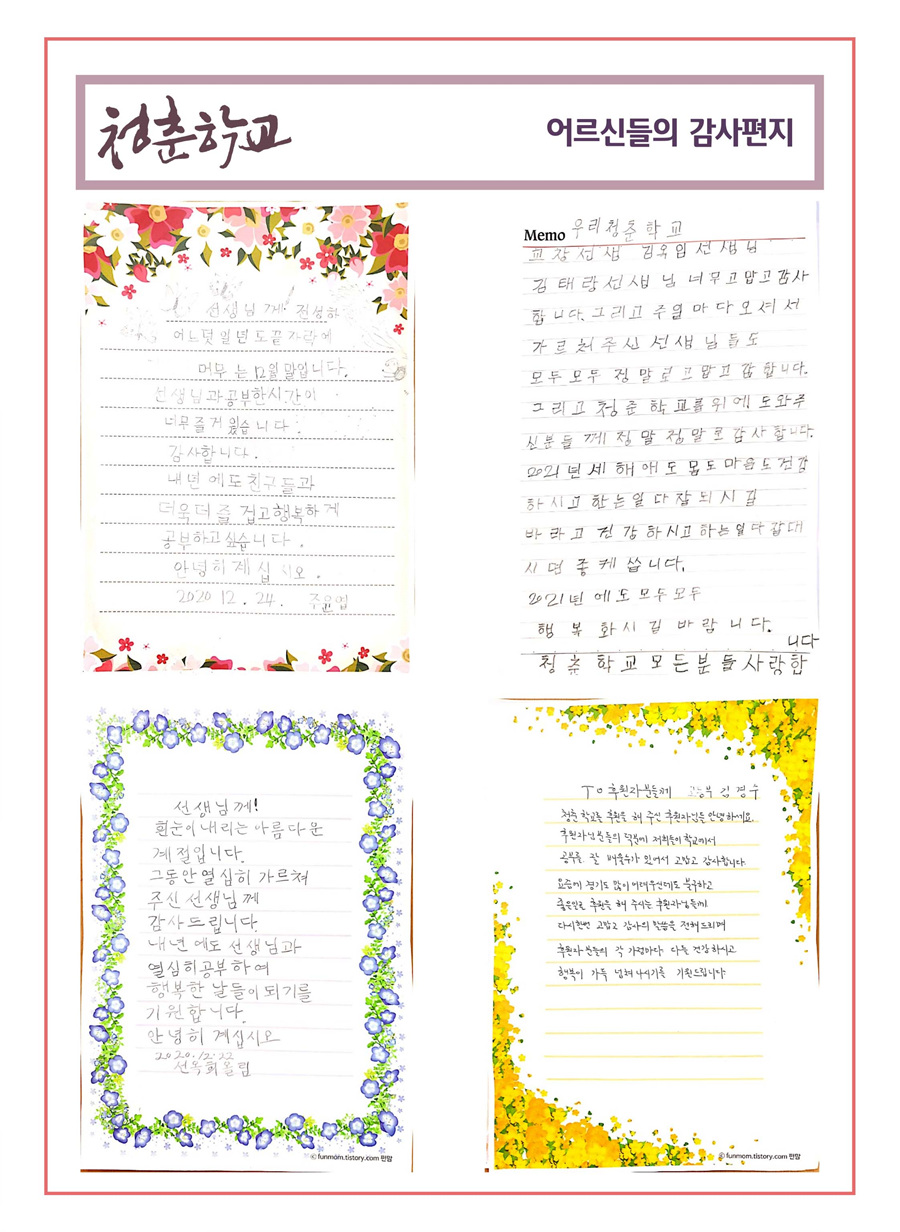 청춘학교
어르신들의 감사편지
선생님께 전성하
어느덧 일년도 끝자락에
머무는 12월 말입니다.
선생님과 공부한시간이
너무즐거웠습니다.
감사합니다.
내년에도 친구들과
더욱더 즐겁고 행복하게
공부하고싶습니다.
안녕히 계십시오.
2020 12. 24. 주윤엽
Memo 우리청춘학교
교장선생 김옥임선생님
김태랑선생님 너무고맙고감사
합니다. 그리고 주일마다오셔서
가르쳐주신 선생님들도
모두모두 정말로고맙고감합니다.
그리고 청춘학교를위에 도와주
신분들께정말정말로감사합니다.
2021년세해애도몸도마음도건강
하시고 하는일다잘되시길
바라고 건강하시고하는일다잘대
시면좋케씁니다.
2021년에도모두모두
행복화시길바람니다.
청춘학교모든분들사랑합
니다
선생님께!
흰눈이내리는아름다운
계절입니다.
그동안열심히 가르쳐
주신선생님께
감사드립니다.
내년에도 선생님과
열심히공부하여
행복한 날들이되기를
기원합니다.
안녕히 계십시오
2020.12.22
선옥희올림
ⓒ funmom.tistory.com 펀맘
To 후원자분들께 고등부 김경수
청춘학교를 후원을 해 주신 후원자님들 안녕하세요.
후원자님분들의 덕분에 저희들이 학교에서
공부를 잘 배울수가 있어서 고맙고 감사합니다.
요즘에 경기도 많이 어려우신데도 불구하고
좋은일로 후원을 해 주시는 후원자님들께
다시한번 고맙고 감사의 말씀을 전해드리며
후원자분들의 각 가정마다 다들 건강하시고
행복이 가득 넘쳐나시기를 기원드립니다
ⓒ funmom.tistory.com 펀맘